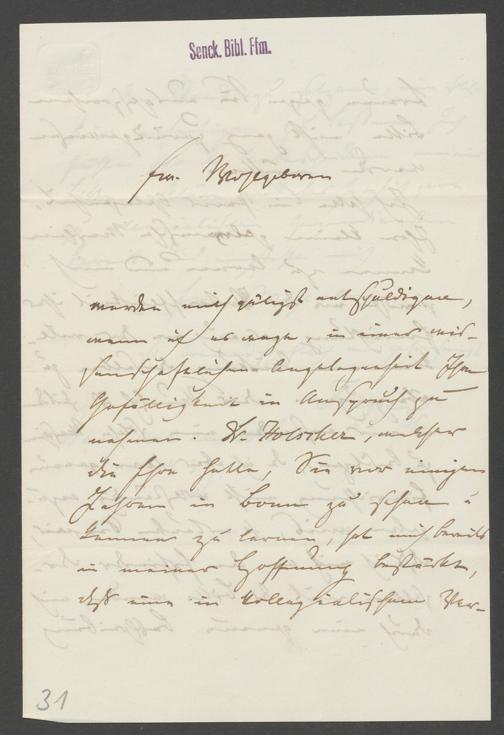 Senck. Bibl. Ffm.
Ew. Wohlgeboren
werden mich gütigst entschuldigen,
wenn ich es wage, in einer wis-
senschaftlichen Angelegenheit Ihre
Gefälligkeit in Anspruch zu
nehmen. Dr. Hölscher, welcher
die Ehre hatte, Sie vor einigen
Jahren in Bonn zu sehen u
kennen zu lernen, hat mich bereits
in meiner Hoffnung bestärkt,
daß eine in kollegialischem Ver-
31